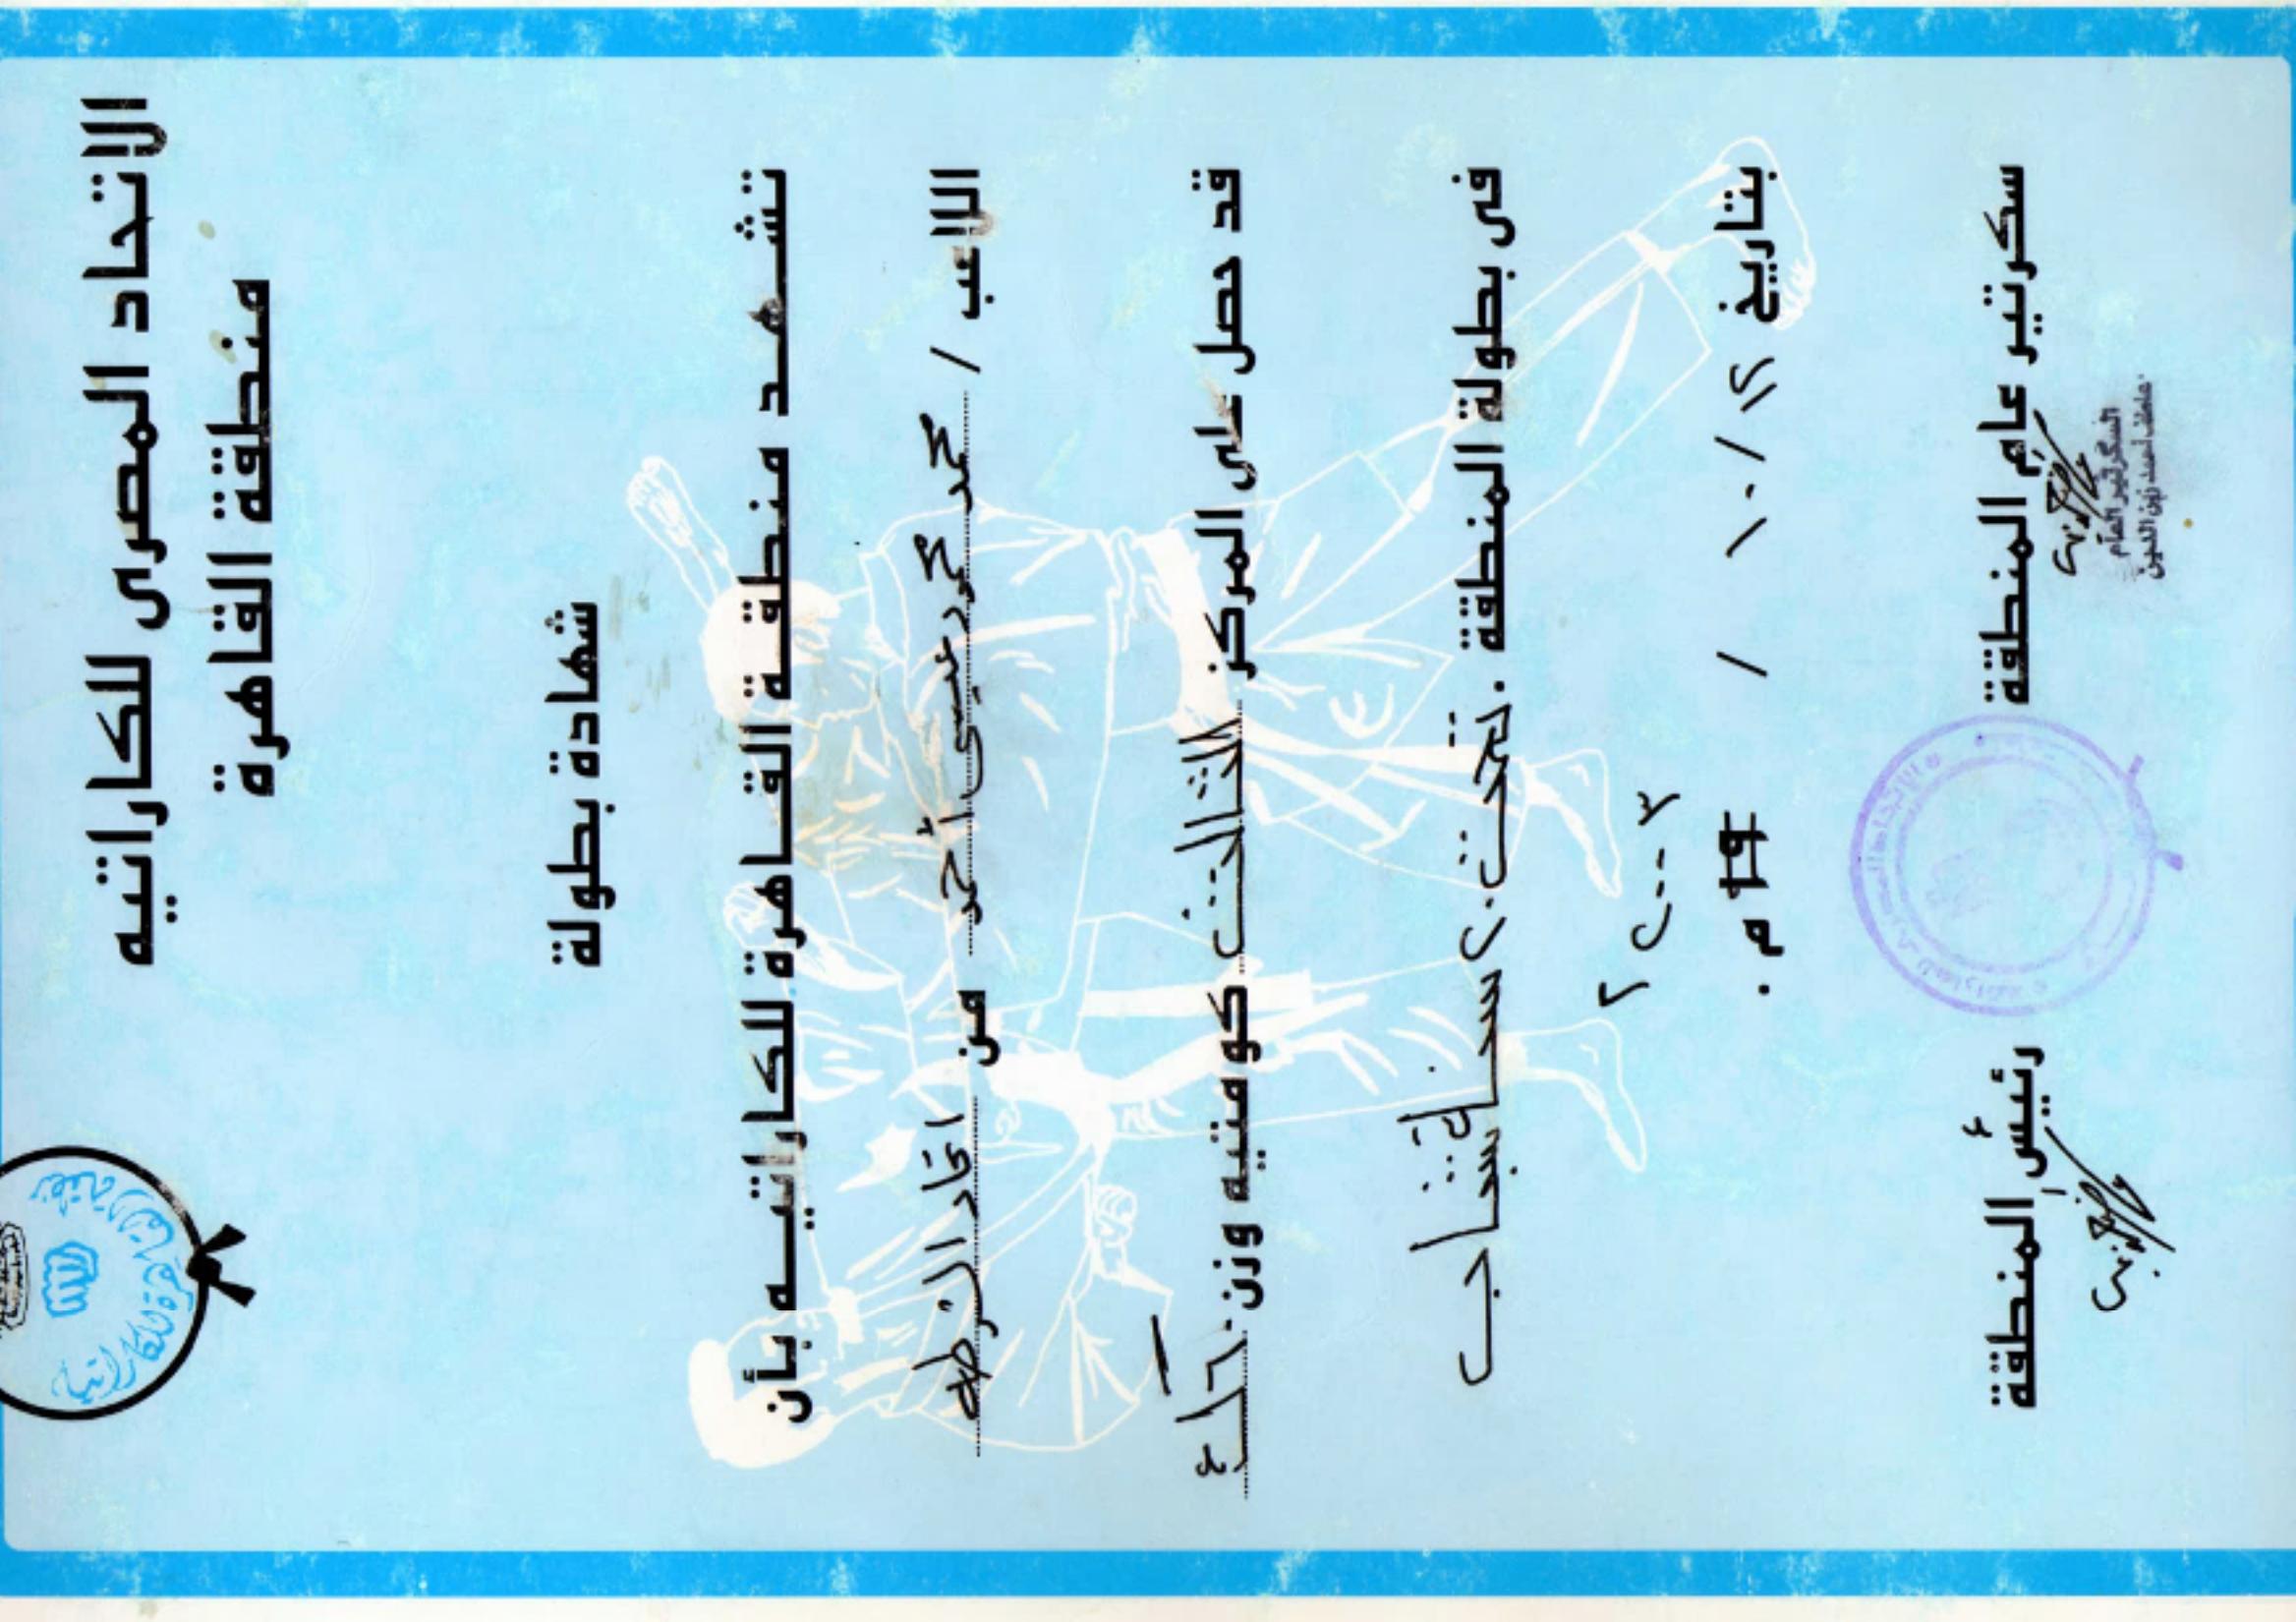 الاتحاد المصرى للكاراتيه
منطقة القاهرة
منطقة القاهرة للكاراتيه
شهادة بطولة
تشهد منطقة القاهرة للكاراتيه بأن
اللاعب / محمد محمود عيسى أحمد من اتحاد الشرطه
قد حصل على المركز الثالث كومتيه وزن ٦٠ ك
فى بطولة المنطقة . تحت ٢٠ سنة شباب
٢٠٠٣
بتاريخ ١٢ / ١٠ / ١٩ م .
سكرتير عام المنطقة
رئيس المنطقة
السكرتير العام
عاطف أحمد زين الدين
الاتحاد المصرى للكاراتيه